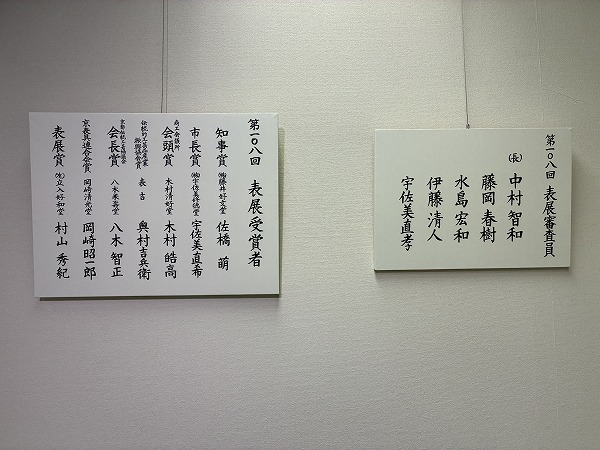 第一〇八回 表展受賞者
知事賞 ㈱藤井好文堂 佐橋 萌
市長賞 ㈱宇佐美松鶴堂 宇佐美直希
商工会議所
会頭賞 木村清好堂 木村皓高
伝統的工芸品産業
振興協会会長賞 表吉 奥村吉兵衛
会長賞 八木米寿堂 八木智正
京表具連合会賞 岡崎清光堂 岡崎昭一郎
表展賞 ㈲立入好和堂 村山秀紀
第一〇八回 表展審査員
(長) 中村智和
藤岡春樹
水島宏和
伊藤清人
宇佐美直孝